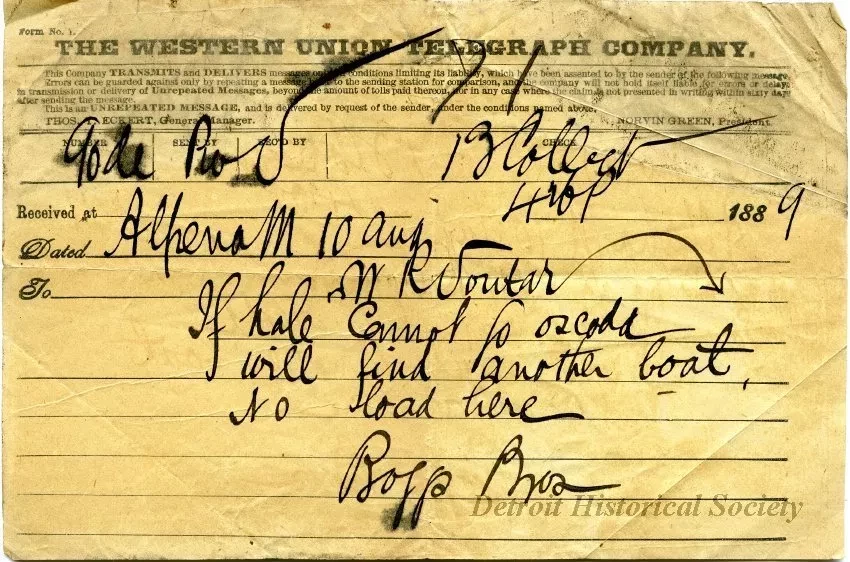 Form No. 1.
THE WESTERN UNION TELEGRAPH COMPANY.
This Company TRANSMITS and DELIVERS messages only on conditions limiting its liability, which have been assented to by the sender of the following message.
Errors can be guarded against only by repeating a message back to the sending station for comparison, and the company will not hold itself liable for errors or delays
in transmission or delivery of Unrepeated Messages, beyond the amount of tolls paid thereon, nor in any case where the claim is not presented in writing within sixty days
after sending the message.
This is an UNREPEATED MESSAGE, and is delivered by request of the sender, under the conditions named above.
THOS. T. ECKERT, General Manager. NORVIN GREEN, President.
NUMBER SENT BY REC'D BY CHECK
13 Collect
Received at 1889
Dated Alpena M 10 aug
To W R Soutar
If hale Cannot go oscoda
will find another boat,
No load here
Bros
Detroit Historical Society